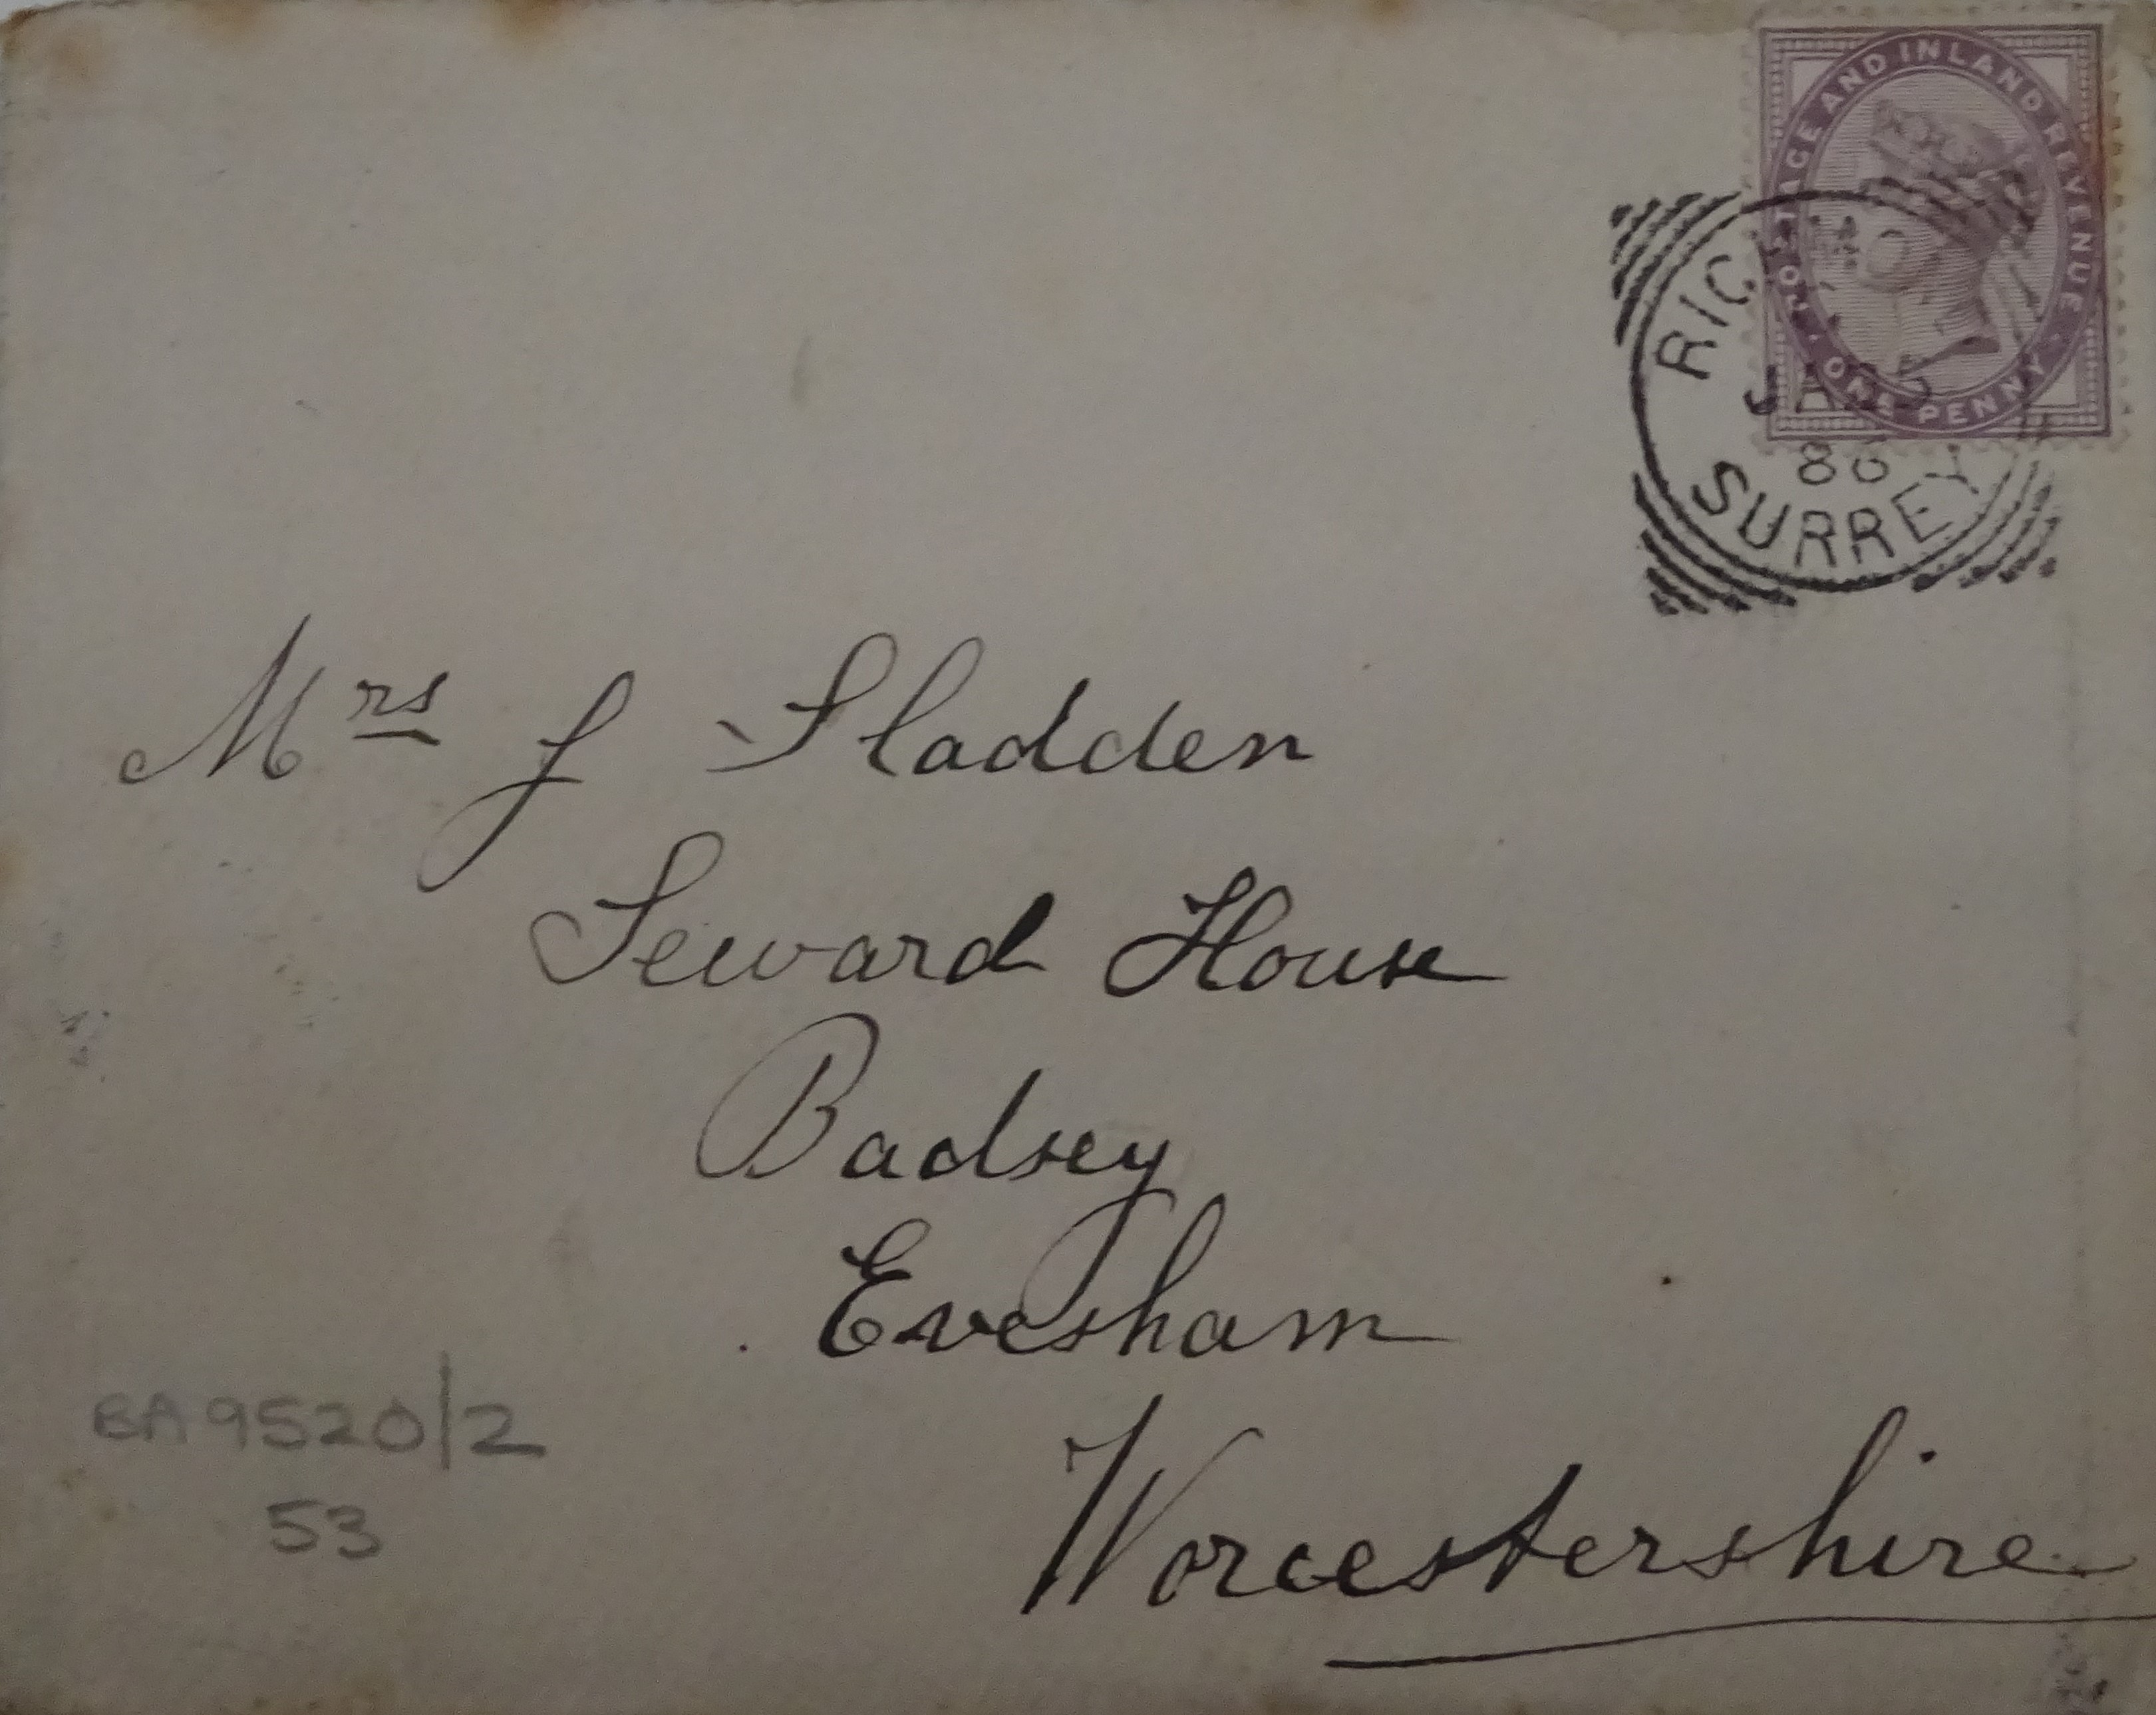 POSTAGE AND INLAND REVENUE
ONE PENNY
SURREY
Mrs J Sladden
Seward House
Badsey
Evesham
Worcestershire
BA9520/2
53